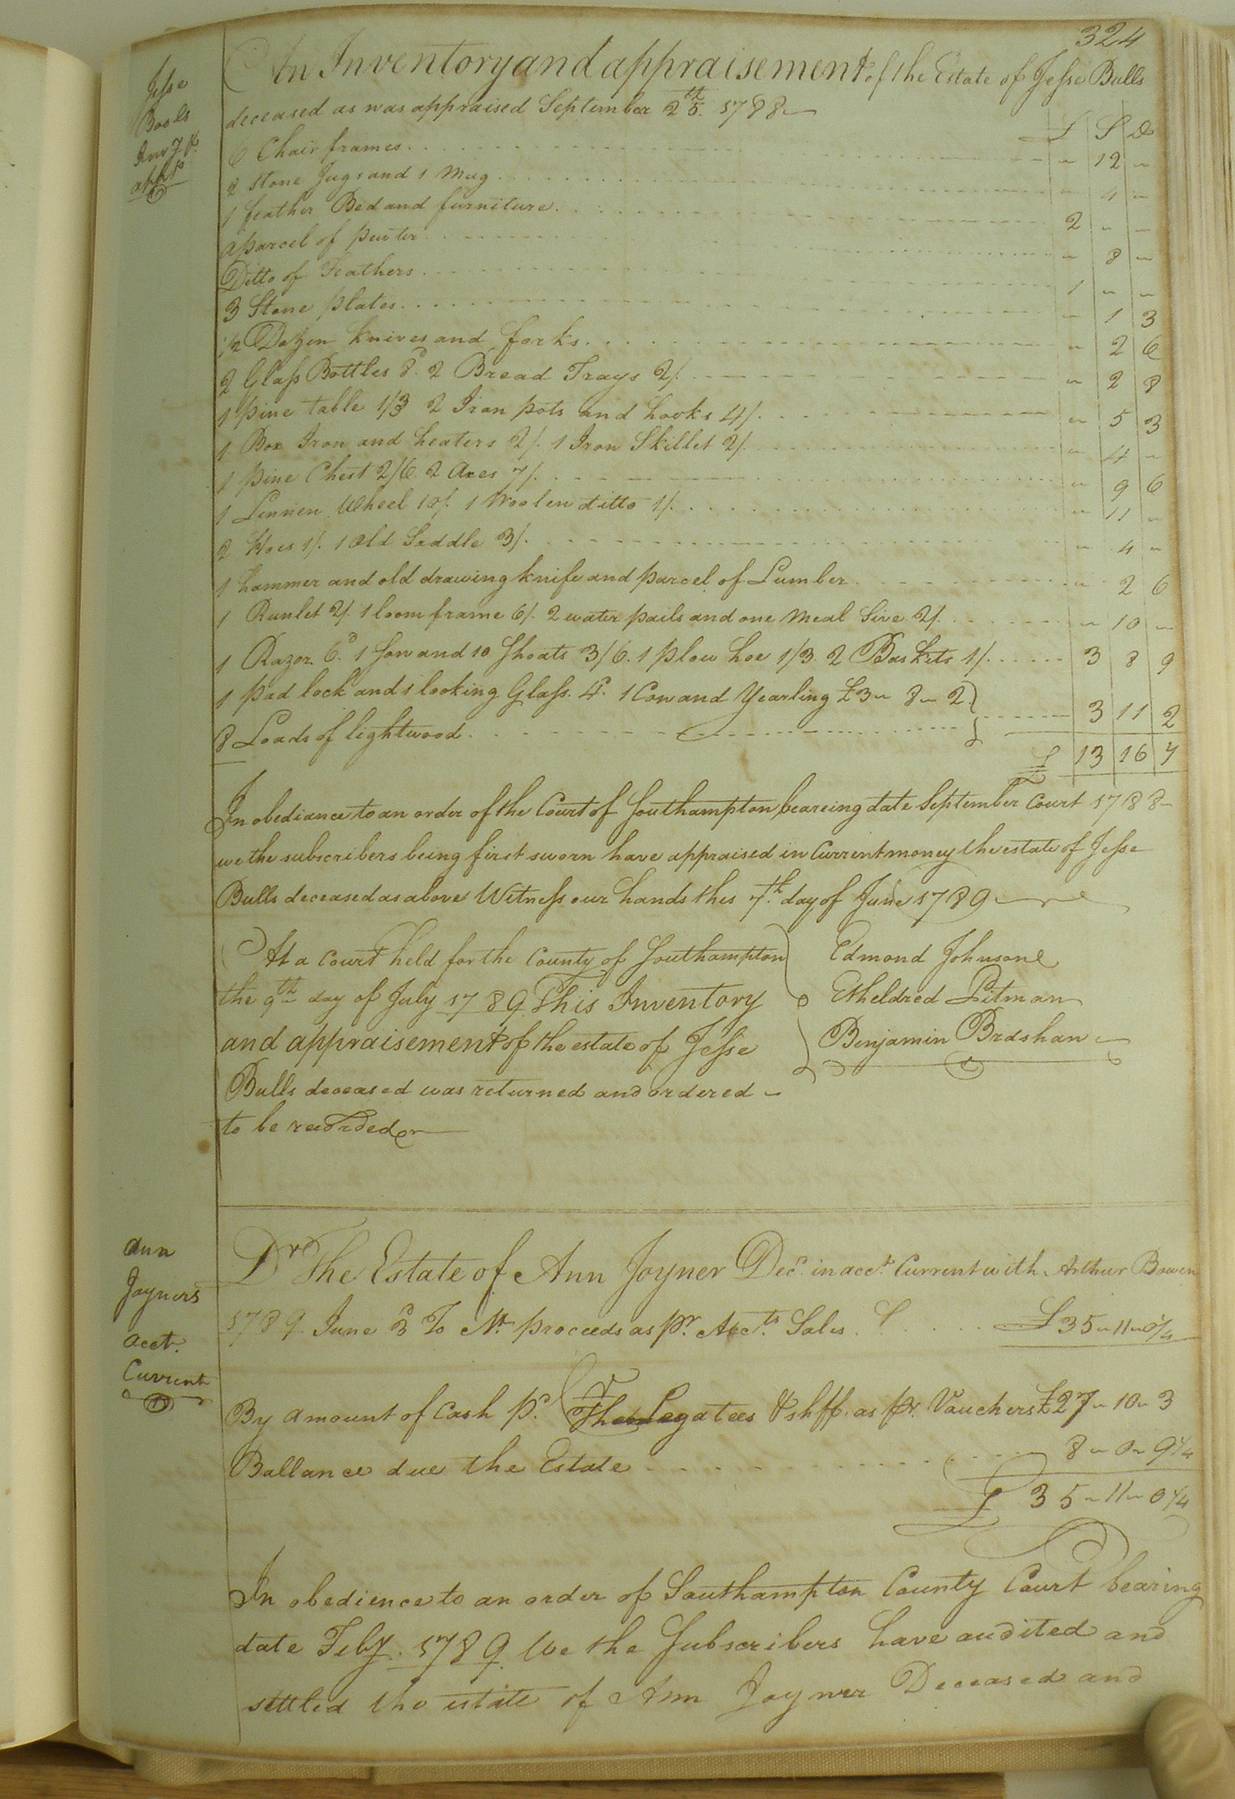 324
Jesse
Bools
Inv.y &
app.t
An Inventory and appraisement of the Estate of Jesse Bulls
deceased as was appraised September 25.th 1788
£ S D
6 Chair frames " 12 "
2 Stone Jugs and 1 Mug " 4 "
1 feather Bed and furniture 2 " "
a parcel of pewter " 8 "
Ditto of Feathers 1 " "
3 Stone plates " 1 3
1/2 Dozen knives and forks " 2 6
2 Glass Bottles 8.d 2 Bread Trays 2/. " 2 8
1 pine table 1/3 2 Iron pots and hooks 4/. " 5 3
1 Box Iron and heaters 2/. 1 Iron Skillet 2/. " 4 "
1 pine Chest 2/6. 2 Axes 7/. " 9 6
1 Linnen Wheel 10/. 1 Woolen ditto 1/. " 11 "
2 Hoes 1/. 1 Old Saddle 3/. " 4 "
1 hammer and old drawing knife and parcel of Lumber " 2 6
1 Runlet 2/. 1 loom frame 6/. 2 water pails and one Meal Sive 2/. " 10 "
1 Razor 6.d 1 Sow and 10 Shoats 3/6. 1 plow hoe 1/3. 2 Baskets 1/. 3 8 9
1 pad lock and 1 looking Glass. 4.d 1 Cow and Yearling £3 " 8 " 2
8 Loads of lightwood 3 11 2
£ 13 16 7
In obediance to an order of the Court of Southampton beareing date September Court 1788
we the subscribers being first sworn have appraised in Current money the estate of Jesse
Bulls deceased as above Witness our hands this 7.th day of June 1789
At a Court held for the County of Southampton
the 9th day of July 1789 This Inventory
and appraisement of the estate of Jesse
Bulls deceased was returned and ordered
to be recorded
Edmond Johnson
Etheldred Pitman
Benjamin Bradshaw
Ann
Joyners
acct.
Current
Dr The Estate of Ann Joyner Dec.d in acc.t Current with Arthur Bowen
1789 June 3 To Nt. proceeds as pr. Acct.s Sales £35 " 11 " 0 1/4
By amount of Cash p.d The Legatees & shff. as pr. Vouchers £27 " 10 " 3
Ballance due the Estate 8 " 0 " 9 1/4
£ 35 " 11 " 0 1/4
In obedience to an order of Southampton County Court bearing
date Feby. 1789 We the Subscribers have audited and
settled the estate of Ann Joyner Deceased and